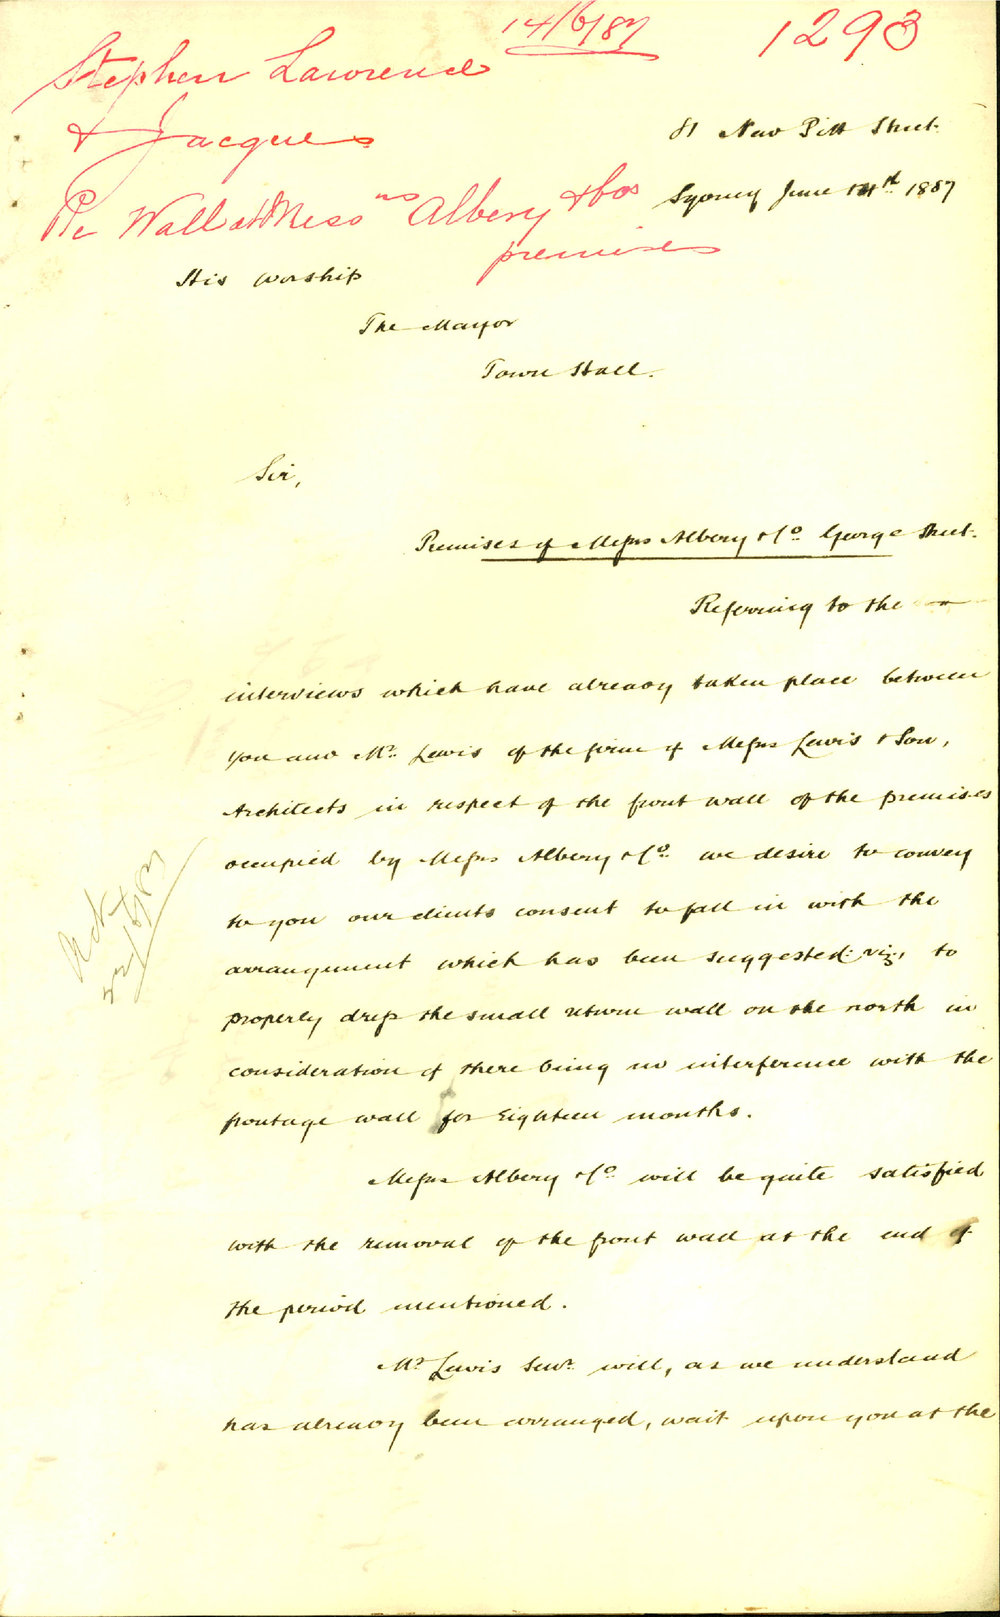 14/6/87
1293
Stephen Lawrence
& Jacques
Re Wall at Messrs Albery & Cos
premises
81 New Pitt Street.
Sydney June 14th 1887
His Worship
The Mayor
Town Hall.
Sir,
Premises of Messrs Albery & Co. George Street.
Referring to the
interviews which have already taken place between
you and Mr. Lewis of the firm of Messrs Lewis & Son,
Architects in respect of the front wall of the premises
occupied by Messrs Albery & Co. we desire to convey
to you our clients consent to fall in with the
arrangement which has been suggested: viz, to
properly dress the small return wall on the north in
consideration of there being no interference with the
frontage wall for Eighteen months.
Messrs Albery & Co. will be quite satisfied
with the removal of the front wall at the end of
the period mentioned.
Mr Lewis Senr. will, as we understand
has already been arranged, wait upon you at the
Ack
22/6/87